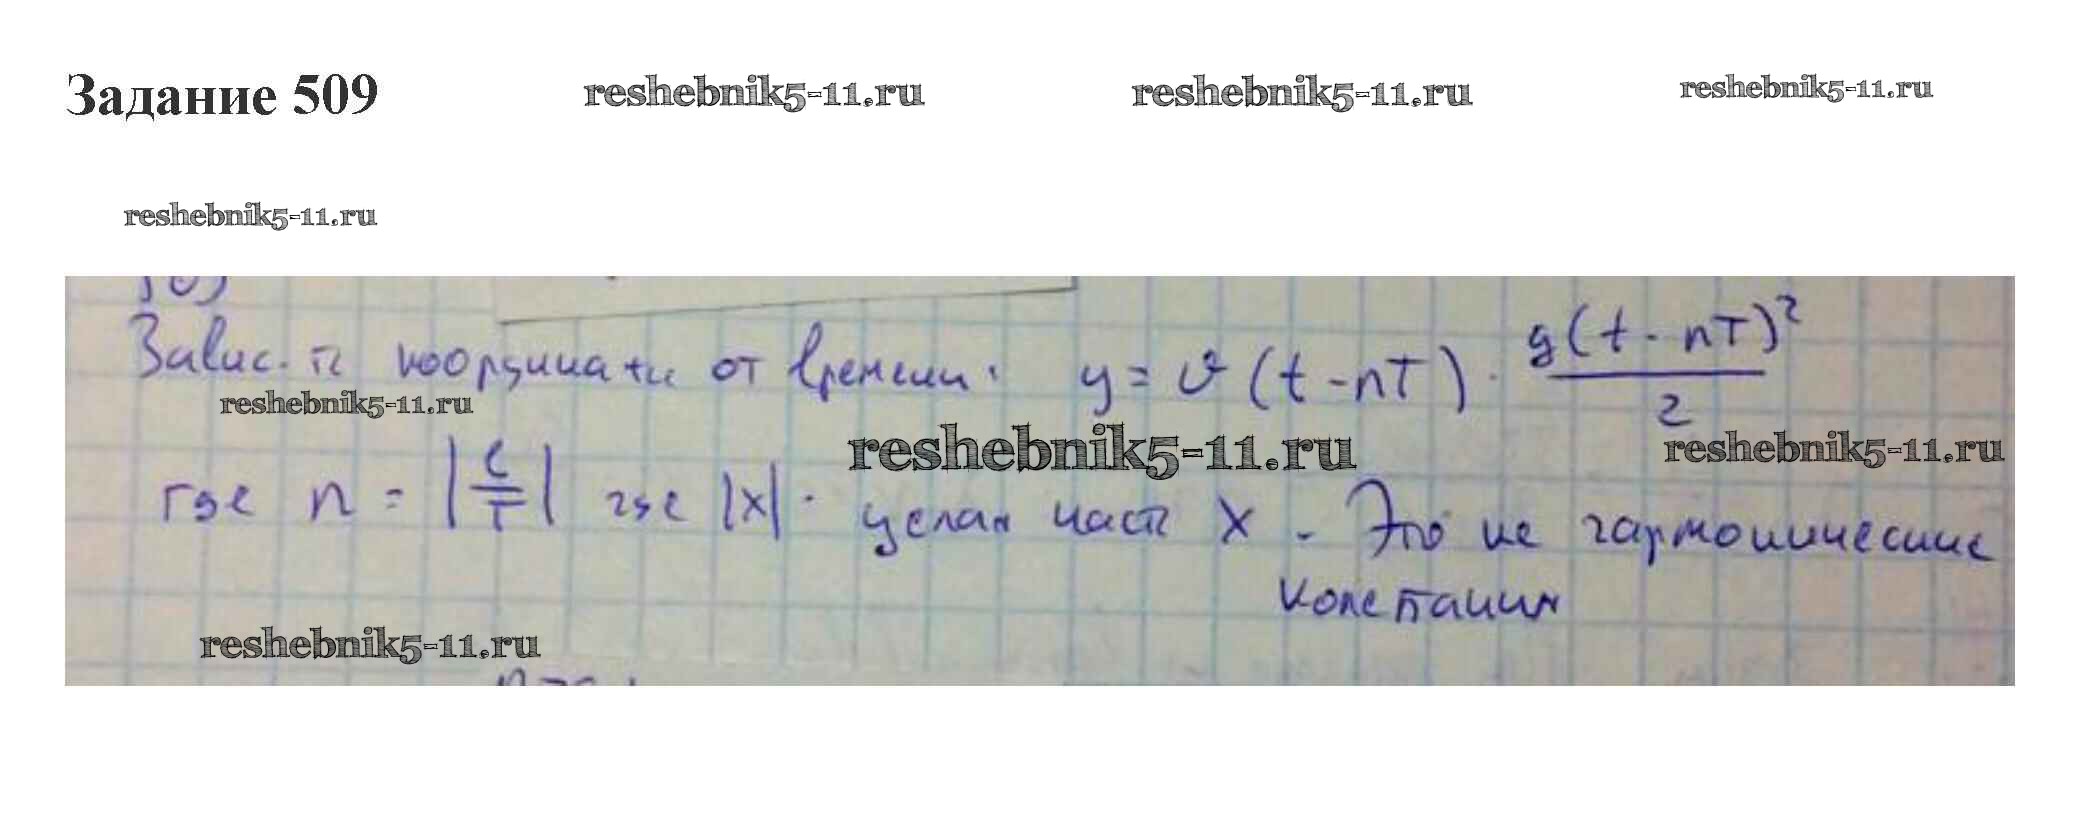 Задание 509 reshebnik5-11.ru reshebnik5-11.ru reshebnik5-11.ru
reshebnik5-11.ru
509
Завис-ть координаты от времени: y = υ (t - nT) · g(t - nT)² / 2
reshebnik5-11.ru reshebnik5-11.ru reshebnik5-11.ru
где n = |t/T| где |x| - целая часть x - Это не гармонические
колебания
reshebnik5-11.ru